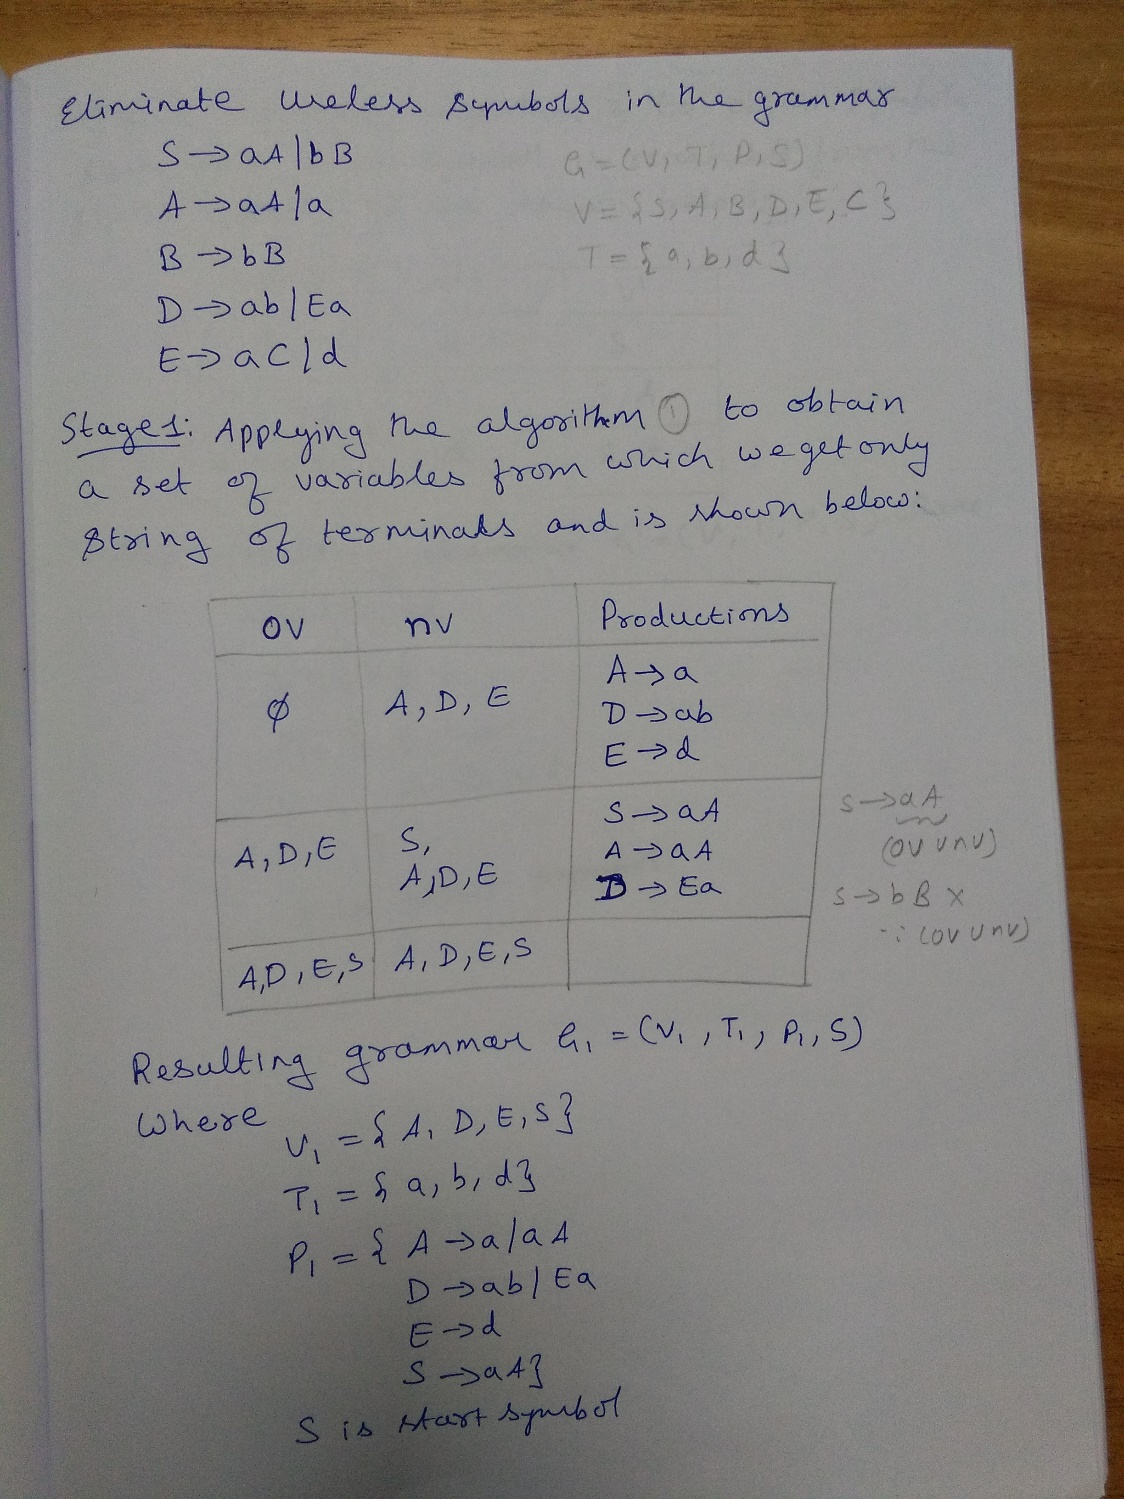 Eliminate useless symbols in the grammar
S → aA | bB
G = (V, T, P, S)
A → aA | a
V = {S, A, B, D, E, C}
B → bB
T = {a, b, d}
D → ab | Ea
E → aC | d
Stage1: Applying the algorithm ① to obtain
a set of variables from which we get only
string of terminals and is shown below:
ov nv Productions
φ A, D, E
A → a
D → ab
E → d
A, D, E
S,
A, D, E
S → aA
A → aA
D → Ea
S → aA
(ov ∪ nv)
S → bB ×
∵ (ov ∪ nv)
A, D, E, S A, D, E, S
Resulting grammar G₁ = (V₁, T₁, P₁, S)
Where
V₁ = { A, D, E, S}
T₁ = { a, b, d}
P₁ = { A → a | aA
D → ab | Ea
E → d
S → aA}
S is start symbol